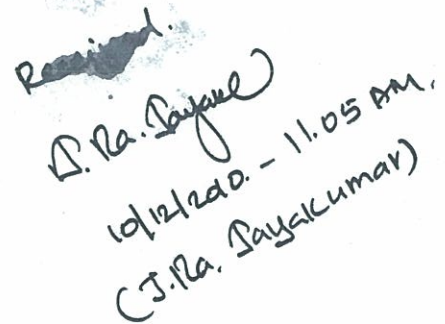 Received.
J. Ra. Jayaku
10/12/2010. - 11.05 AM.
(J. Ra. Jayakumar)